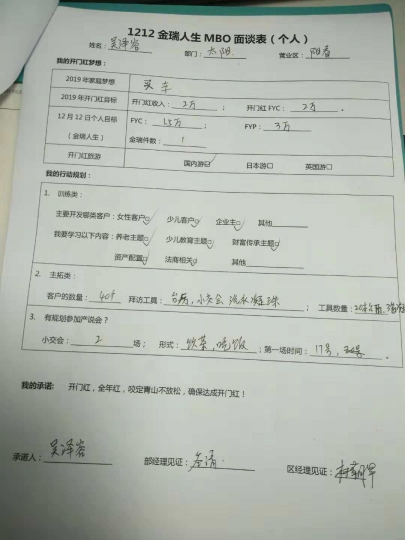 1212 金瑞人生 MBO 面谈表（个人）
姓名：吴泽容 部门：太阳 营业区：阳春
我的开门红梦想：
2019 年家庭梦想 买车
2019 年开门红目标 开门红收入：2万； 开门红 FYC：2万。
12 月 12 日个人目标 FYC：1.5万； FYP：3万
（金瑞人生） 金瑞件数：1
开门红旅游 国内游☑ 日本游□ 英国游□
我的行动规划：
1. 训练类：
主要开发哪类客户：女性客户☑ 少儿客户☑ 企业主☑ 其他
我要学习以下内容：养老主题☑ 少儿教育主题☑ 财富传承主题☑
资产配置☑ 法商相关☑ 其他
2. 主拓类：
客户的数量：40个 拜访工具：台历，小交会 洗衣凝珠； 工具数量：20
3. 有规划参加产说会？
小交会：2 场； 形式：饮茶，吃饭；第一场时间：17号，
我的承诺： 开门红，全年红，咬定青山不放松，确保达成开门红！
承诺人：吴泽容 部经理见证： 区经理见证：